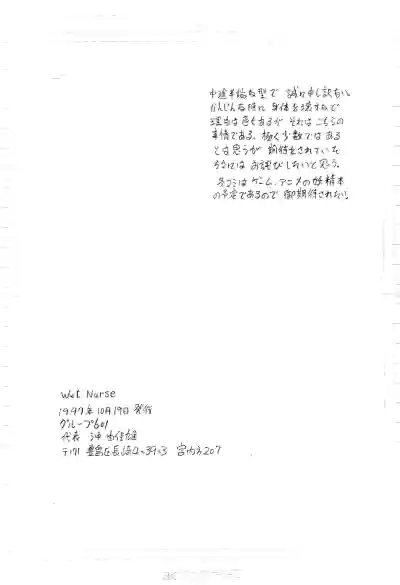 中途半端な型で 誠に申し訳ない。
かんじんな時に 身体を壊すなど
理由は色々あるが それはこちらの
事情である。極く少数ではある
とは思うが 期待をされていた
方々には お詫びしたいと思う。
冬コミは ゲーム、アニメの妖精本
の予定であるので 御期待されたい。
Wet Nurse
1997年10月19日 発行
グループ601
代表 沖 由佳雄
〒171 豊島区長崎4-39-3 宮内方207